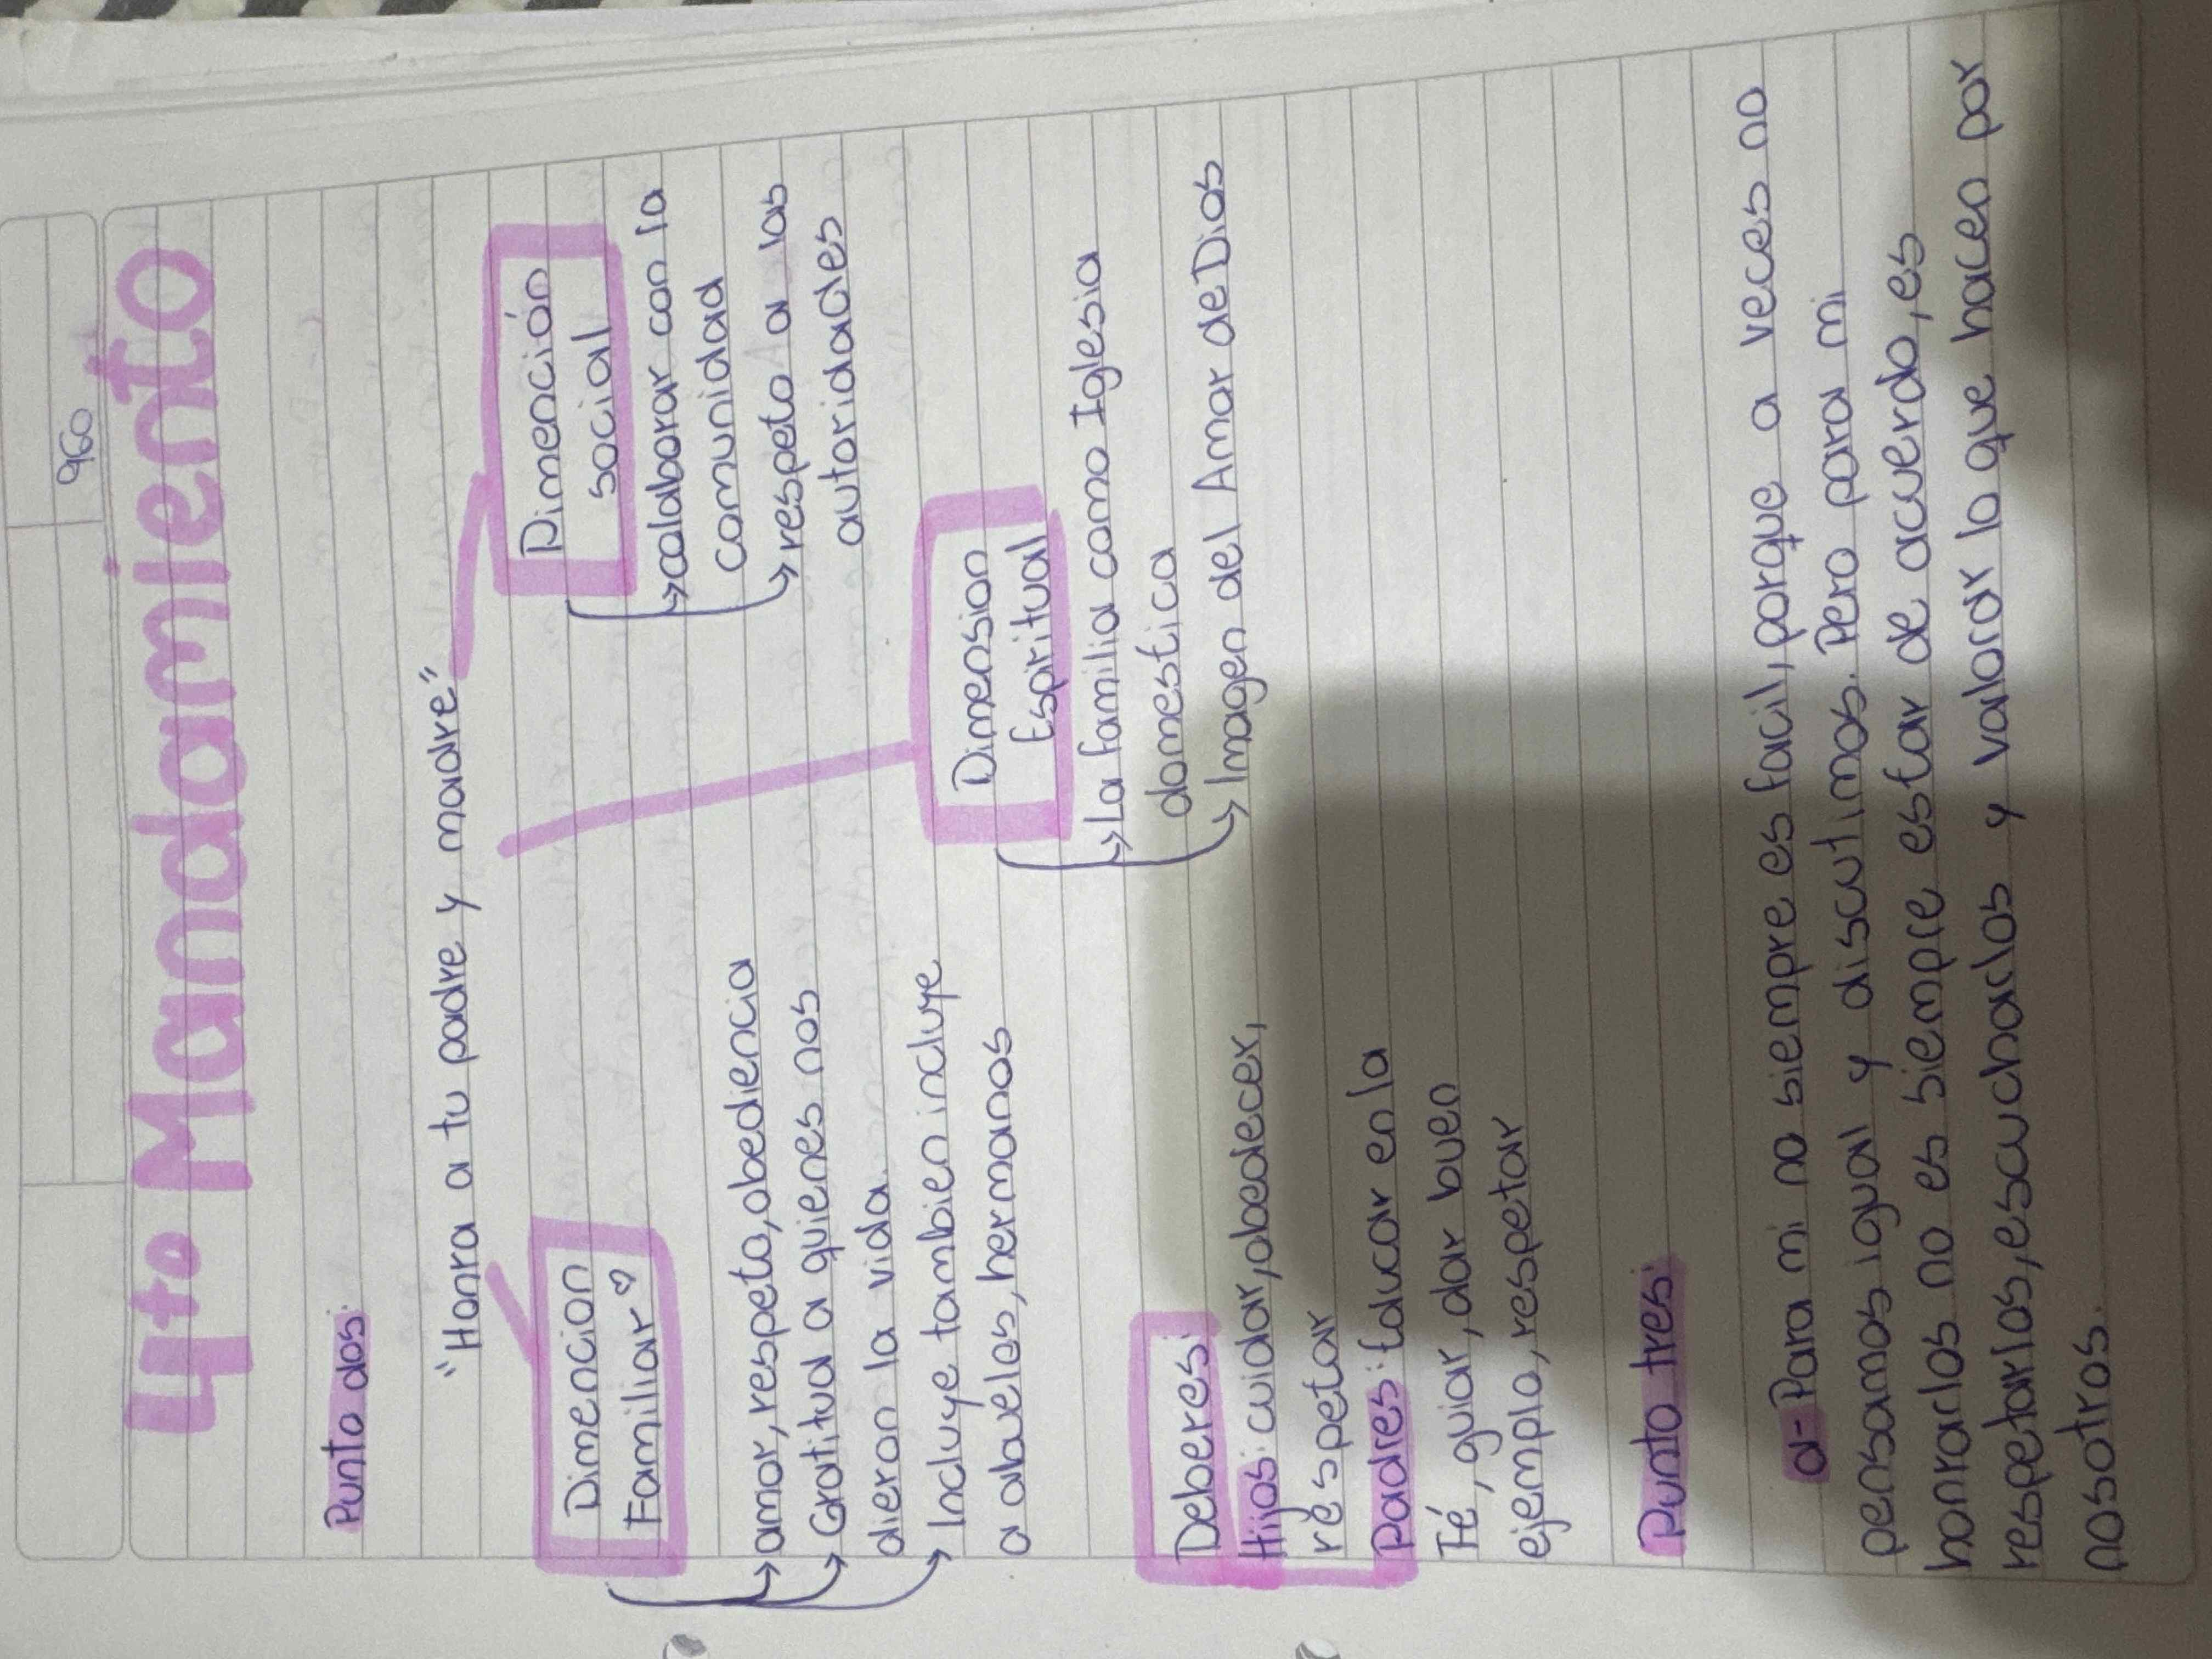 960
4to Mandamiento
Punto dos:
"Honra a tu padre y madre"
Dimencion
Familiar ♡
→ amor, respeto, obediencia
→ Gratitud a quienes nos
dieron la vida.
→ Incluye tambien incluye
a abuelos, hermanos
Dimención
social
→ colaborar con la
comunidad
→ respeto a las
autoridades
Dimension
Espiritual
→ La familia como Iglesia
domestica
→ Imagen del Amor de Dios
Deberes:
Hijos: cuidar, obedecer,
respetar
Padres: Educar en la
Fé, guiar, dar buen
ejemplo, respetar
Punto tres:
a- Para mi no siempre es facil, porque a veces no
pensamos igual y discutimos. Pero para mi
honrarlos no es siempre estar de acuerdo, es
respetarlos, escucharlos y valorar lo que hacen por
nosotros.